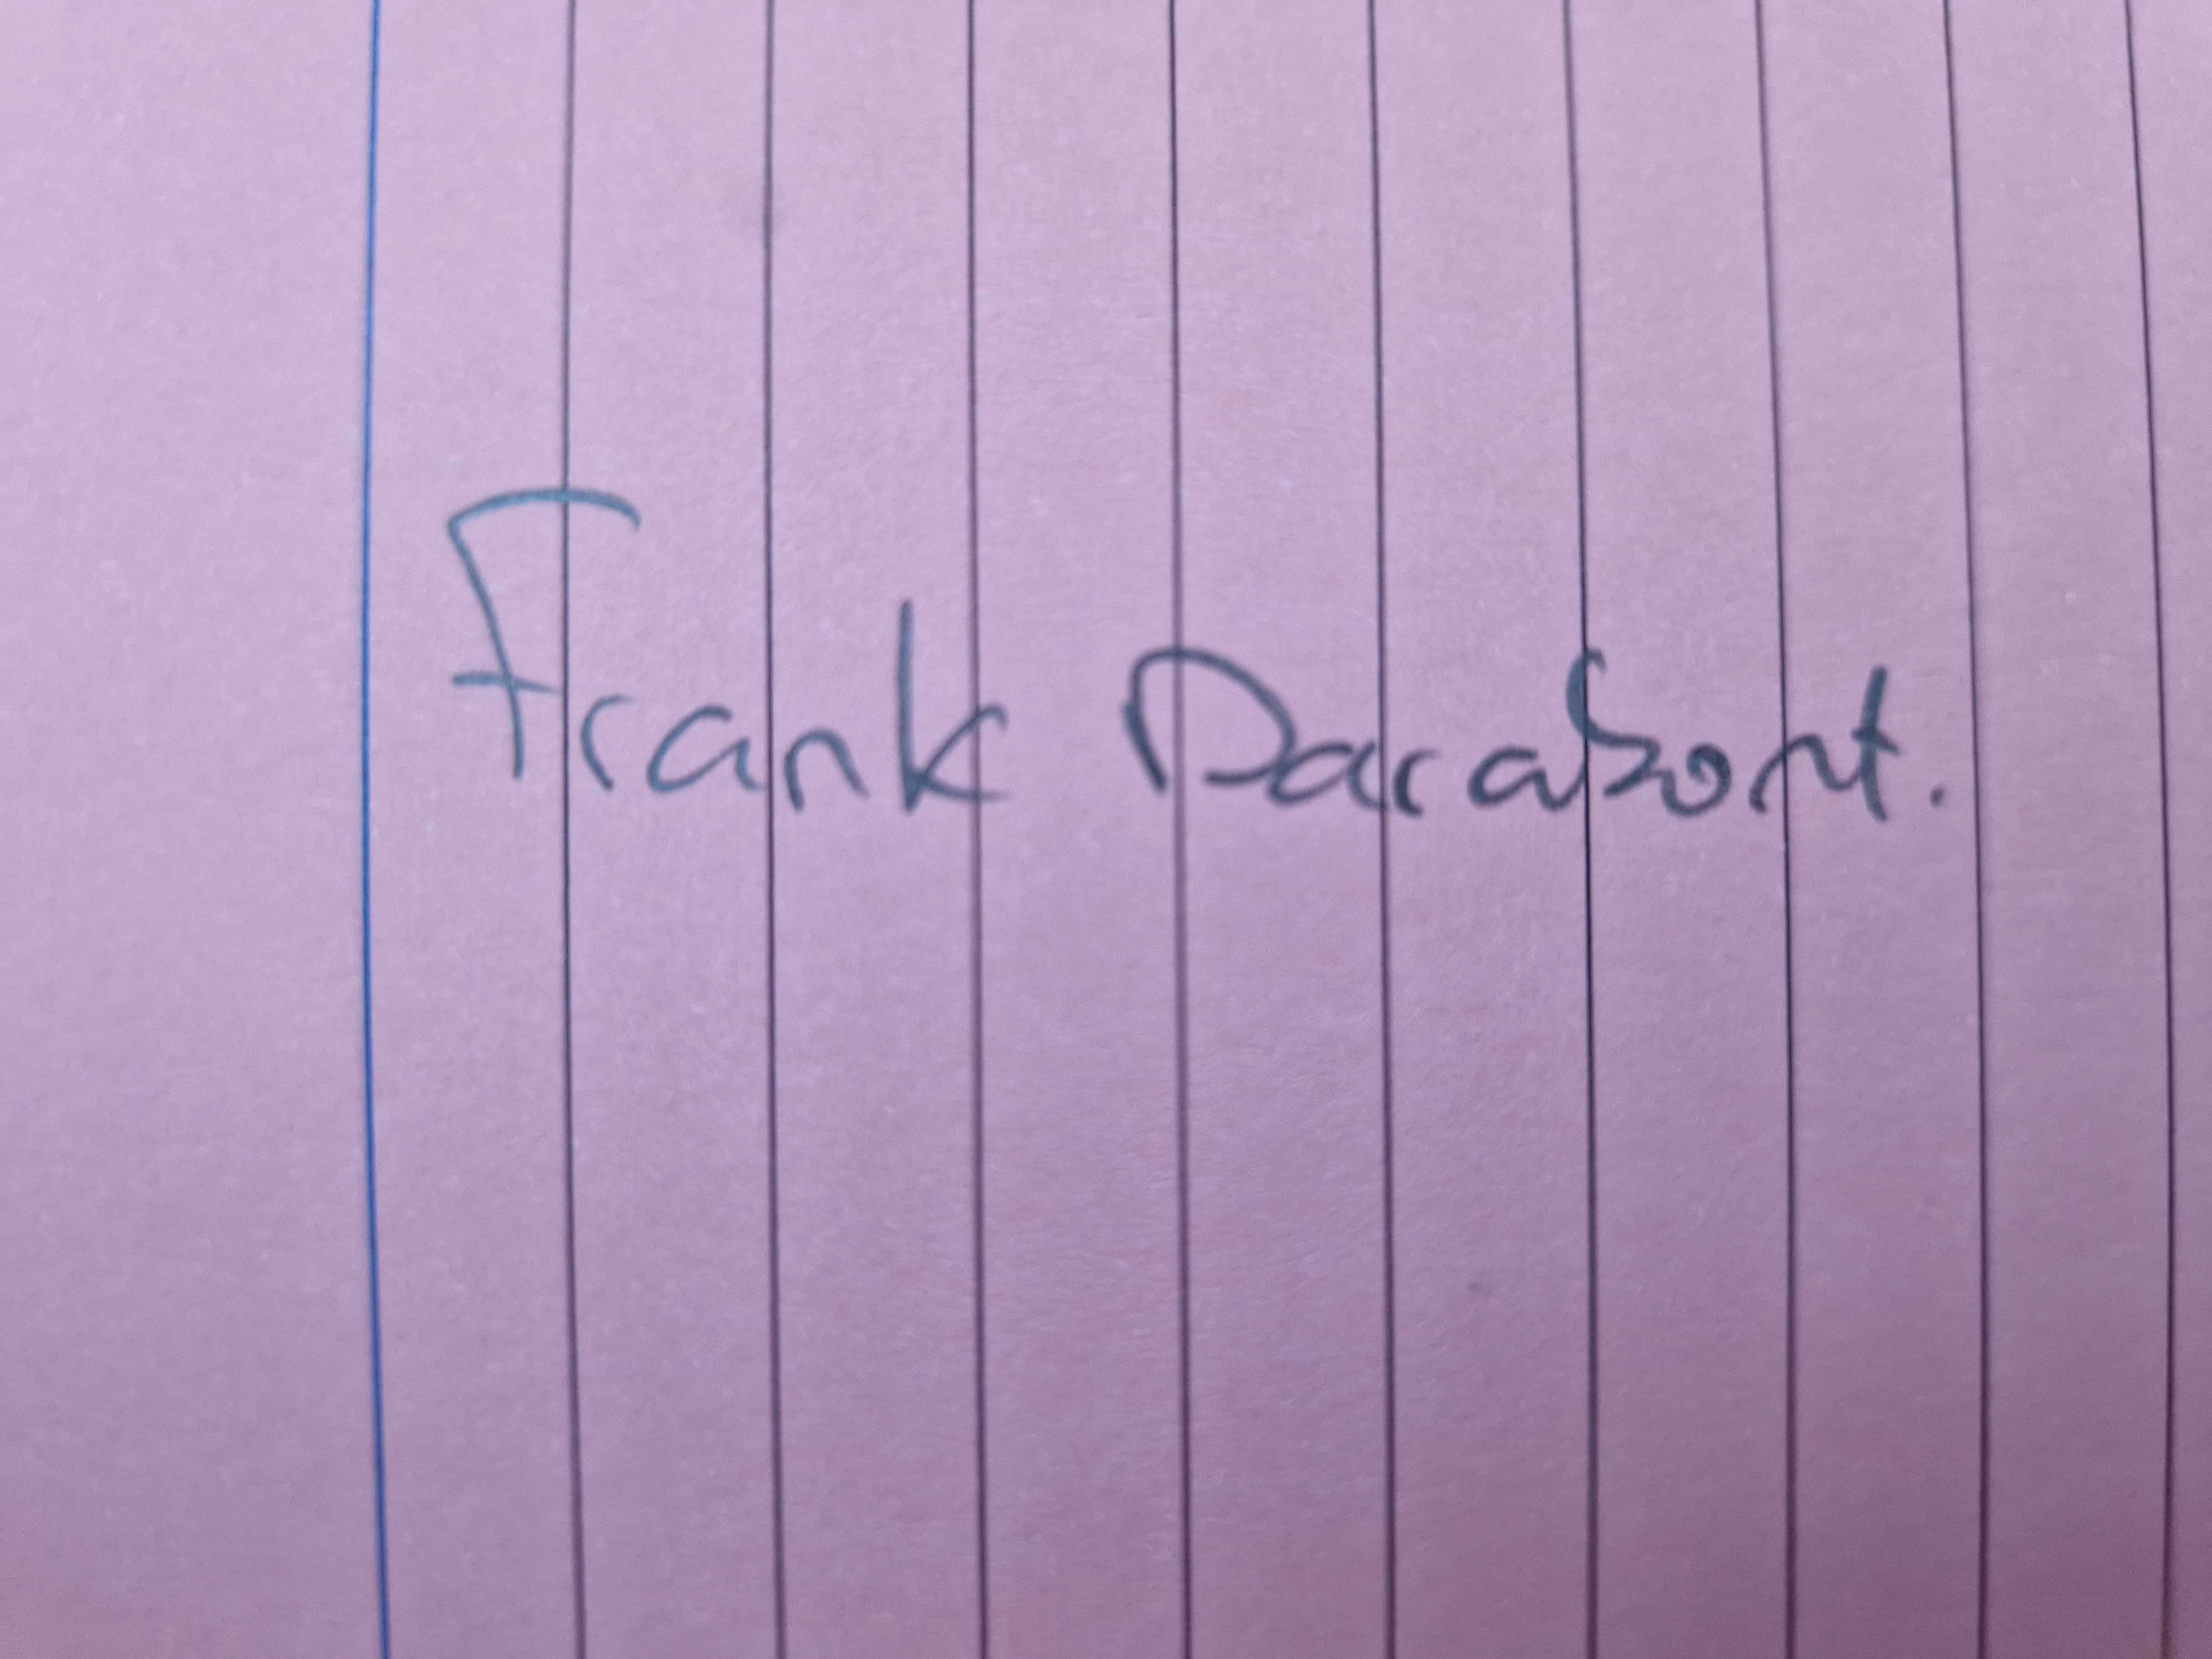 Frank Darabont.